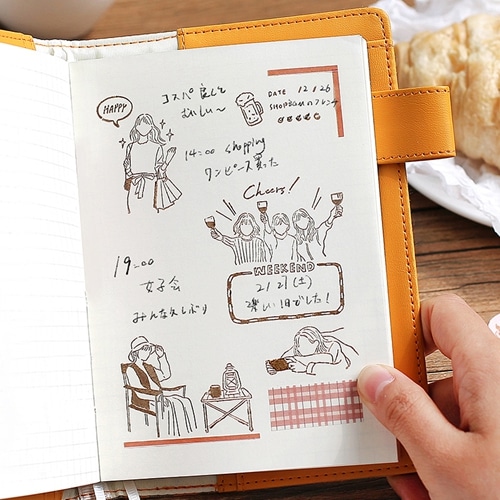 コスパ良しで
おいしい〜
DATE 12/26
HAPPY
14:00 shopping
ワンピース買った
Cheers!
19:00
女子会
みんな久しぶり
WEEKEND
(土)
楽しい1日でした!